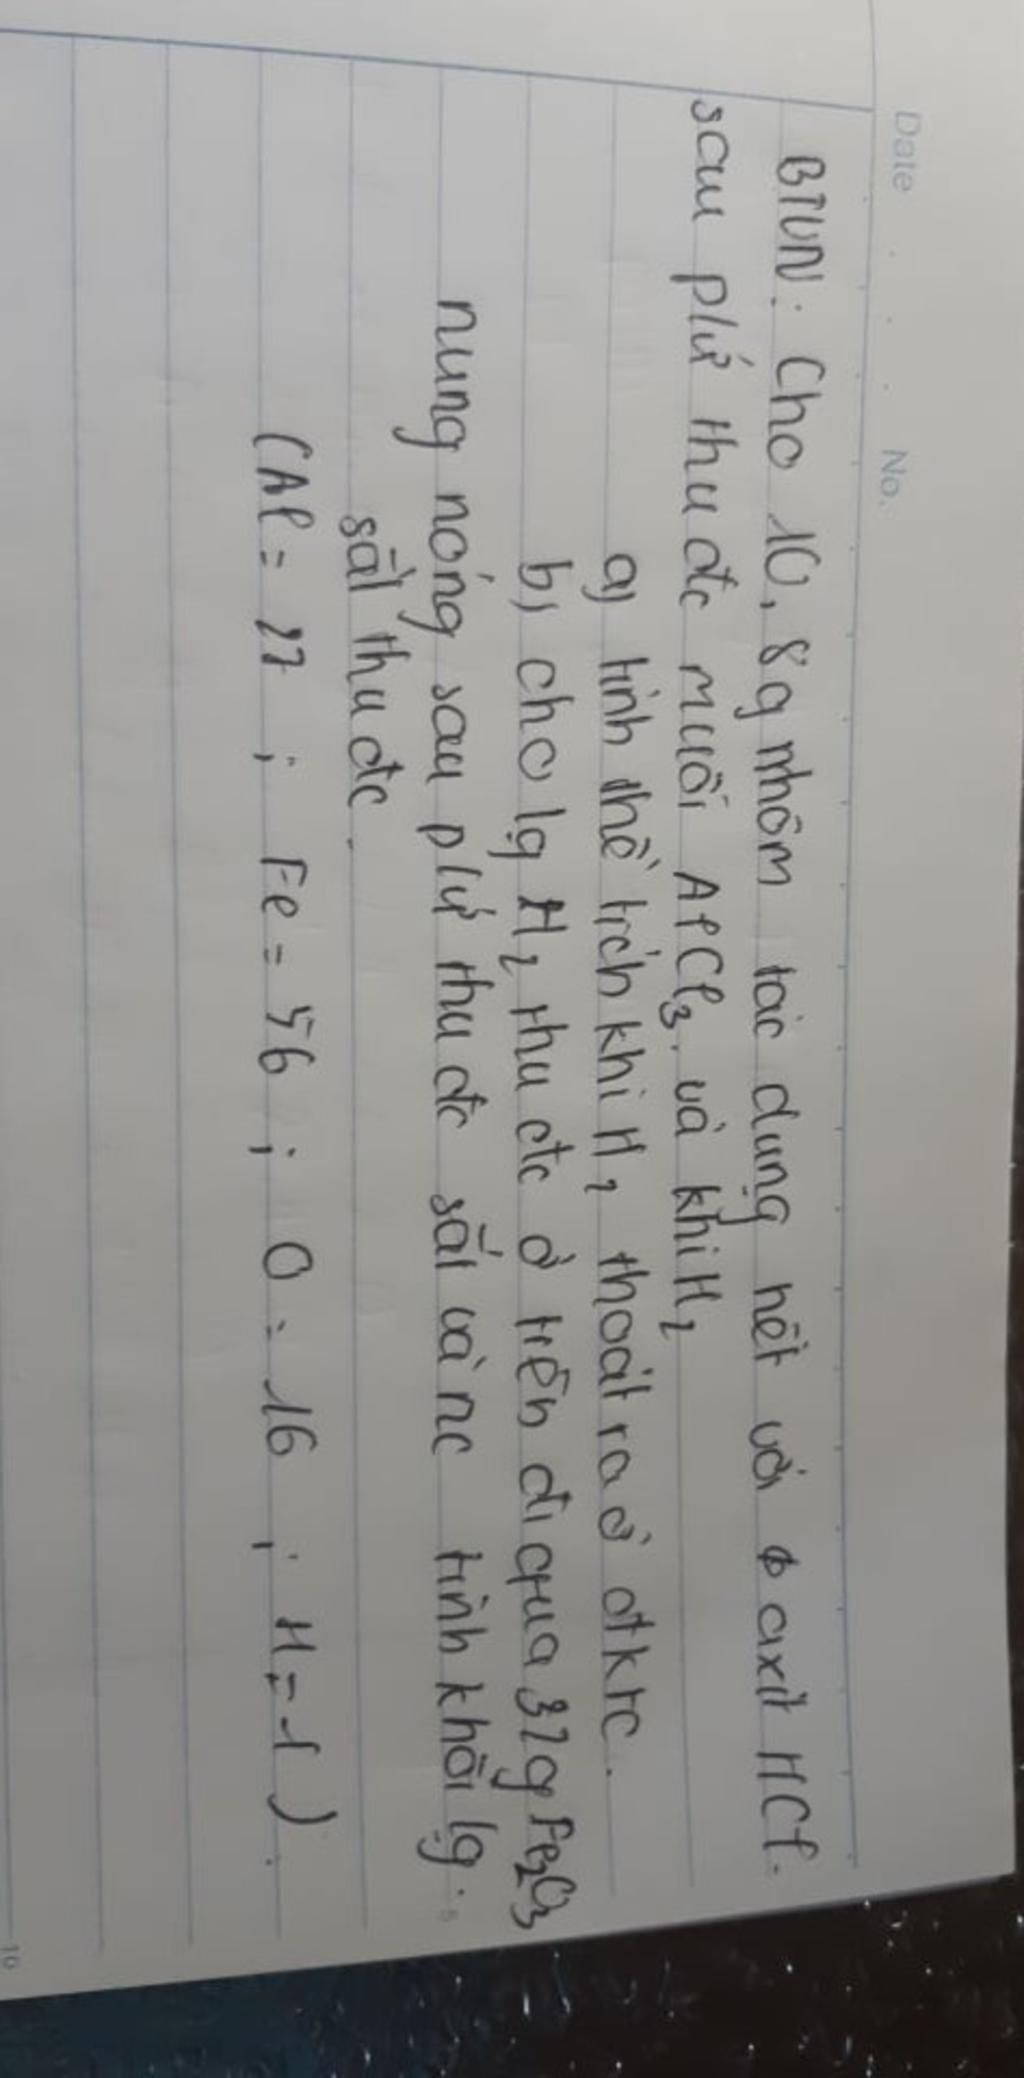 Date
No.
BTVN: Cho 10,8g nhôm tác dụng hết với axit HCl.
sau pứ thu đc muối AlCl3. và khí H2
a) tính thể tích khí H2 thoát ra ở đktc.
b) cho lg H2 thu đc ở trên đi qua 32g Fe2O3
nung nóng sau pứ thu đc sắt và nc tính khối lg.
sắt thu đc.
(Al = 27 ; Fe = 56 ; O = 16 ; H = 1).
10